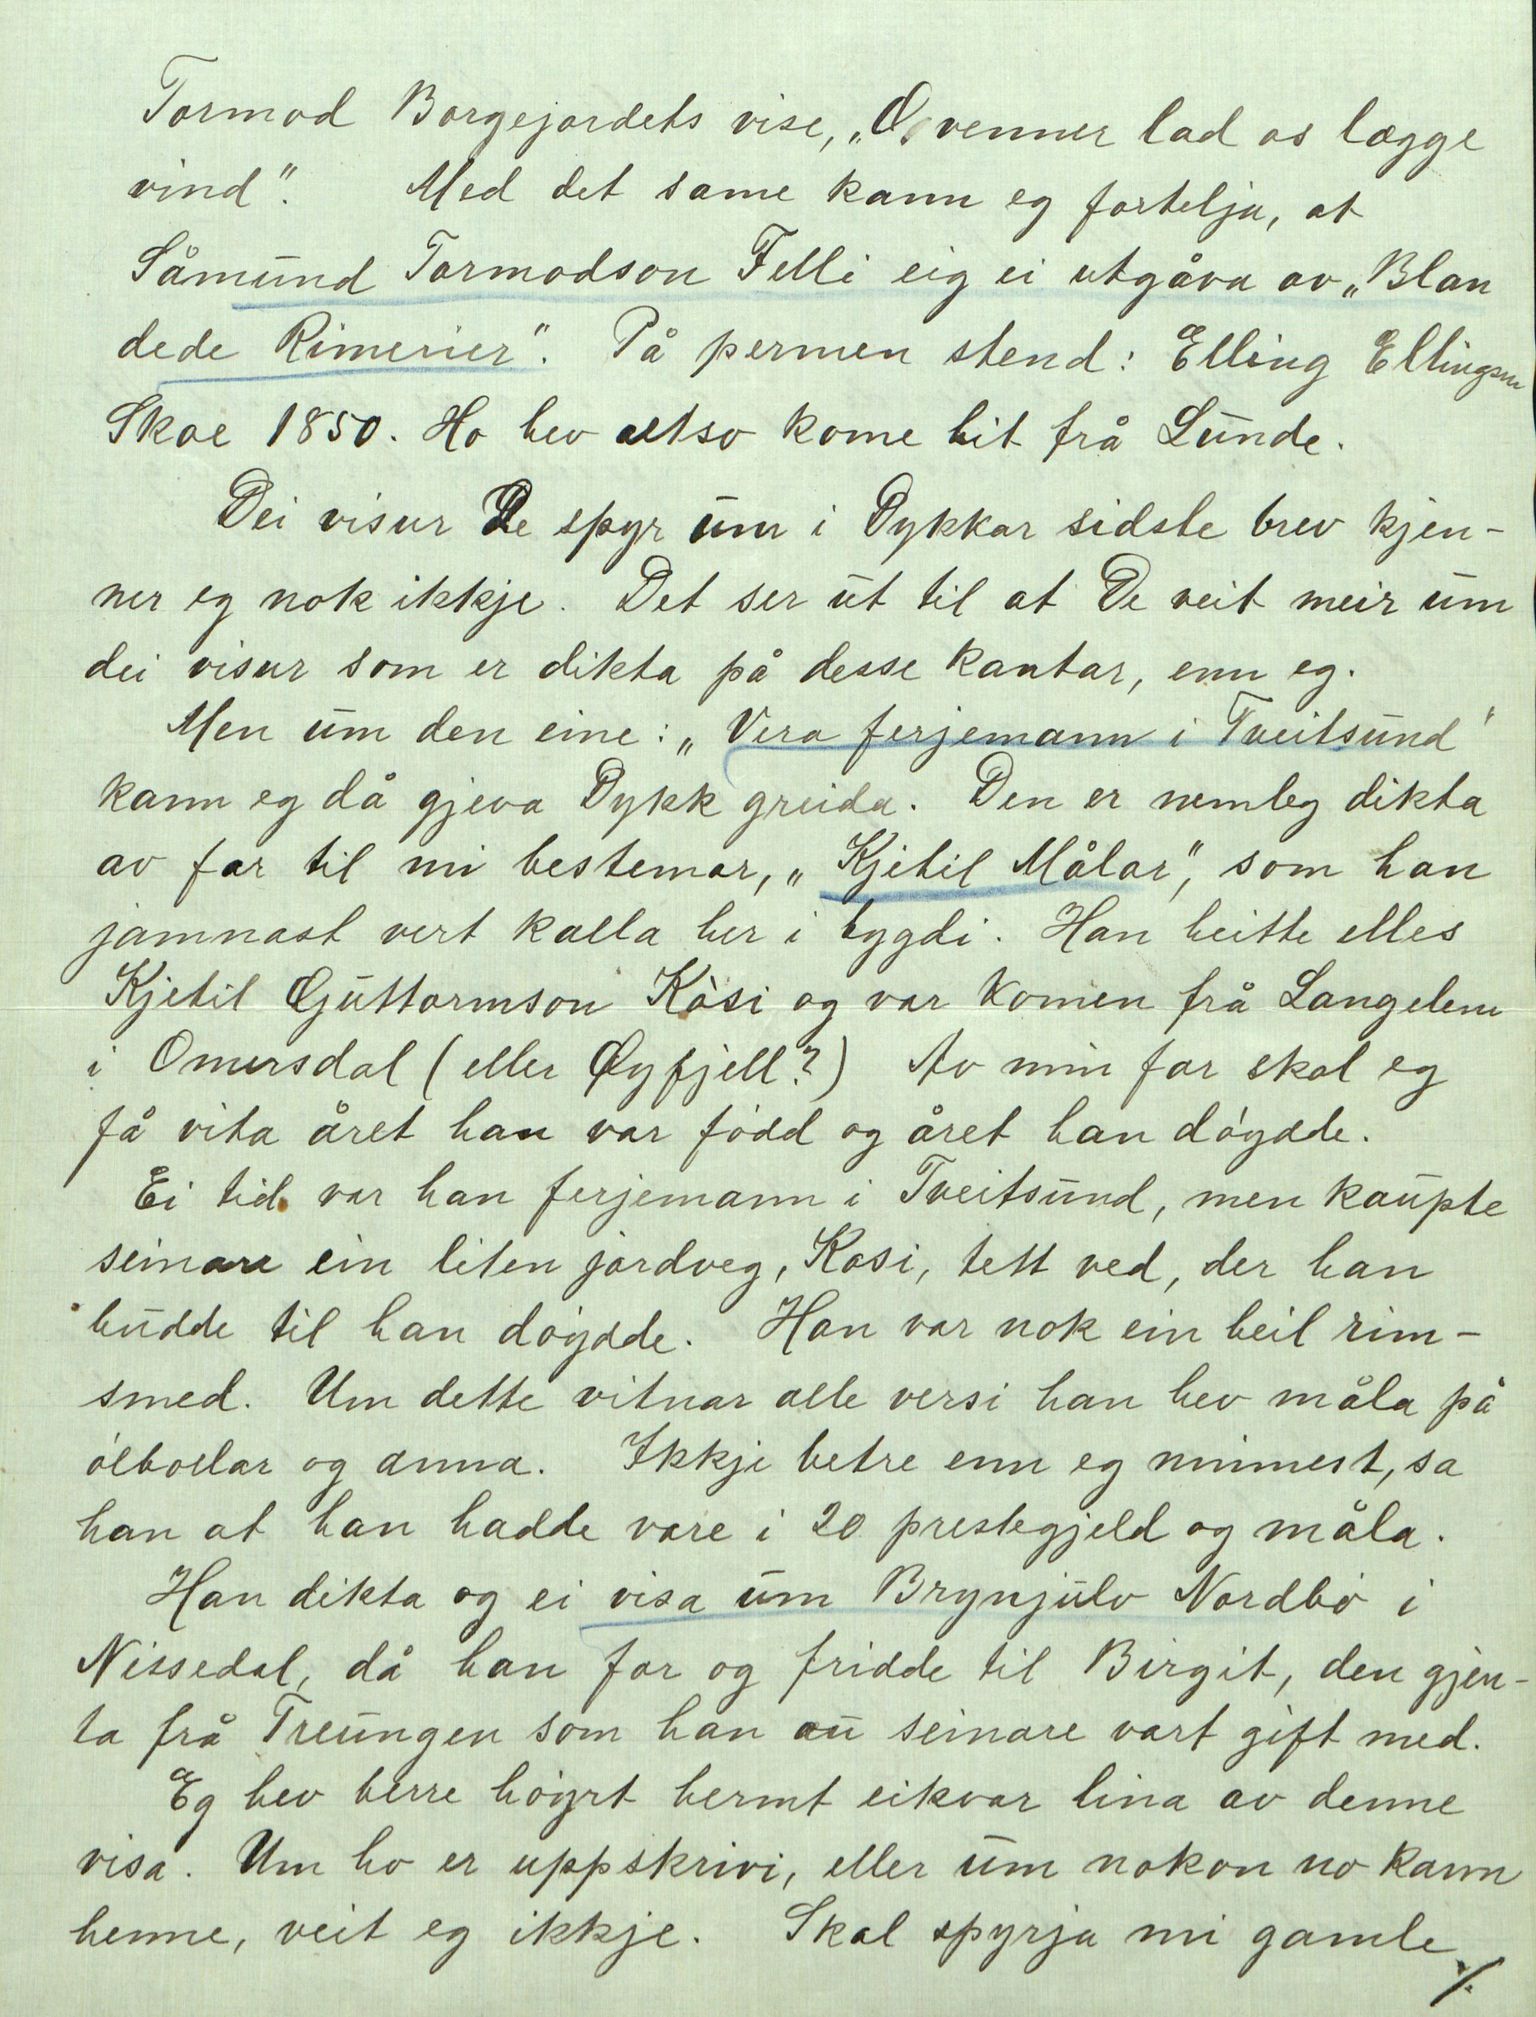 Tormod Borgejordets vise, „O, venner lad os lægge
vind". Med det same kann eg fortelja, at
Såmund Tormodson Felli eig ei utgåva av „Blan
dede Rimerier". På permen stend: Elling Ellingsen
Skoe 1850. Ho hev altso kome hit frå Lunde.
Dei visur De spyr um i Dykkar sidste brev kjen-
ner eg nok ikkje. Det ser ut til at De veit meir um
dei visur som er dikta på desse kantar, enn eg.
Men um den eine: „Vera ferjemann i Tveitsund"
kann eg då gjeva Dykk greida. Den er nemleg dikta
av far til mi bestemor, „Kjetil Målar", som han
jamnast vert kalla her i bygdi. Han heitte elles
Kjetil Guttormson Kòsi og var komen frå Langelem
i Omersdal (eller Øyfjell?) Av min far skal eg
få vita året han var fódd og året han dóydde.
Ei tid var han ferjemann i Tveitsund, men kaupte
seinare ein liten jordveg, Kosi, tett ved, der han
budde til han dóydde. Han var nok ein heil rim-
smed. Um dette vitnar alle versi han hev måla på
ólbollar og anna. Ikkje betre enn eg minnest, sa
han at han hadde vore i 20 prestegjeld og måla.
Han dikta og ei visa um Brynjulv Nordbó i
Nissedal, då han for og fridde til Birgit, den gjen-
ta frå Treungen som han au seinare vart gift med.
Eg hev berre hóyrt hermt eikvar lina av denne
visa. Um ho er uppskrivi, eller um nokon no kann
henne, veit eg ikkje. Skal spyrja mi gamle
./.